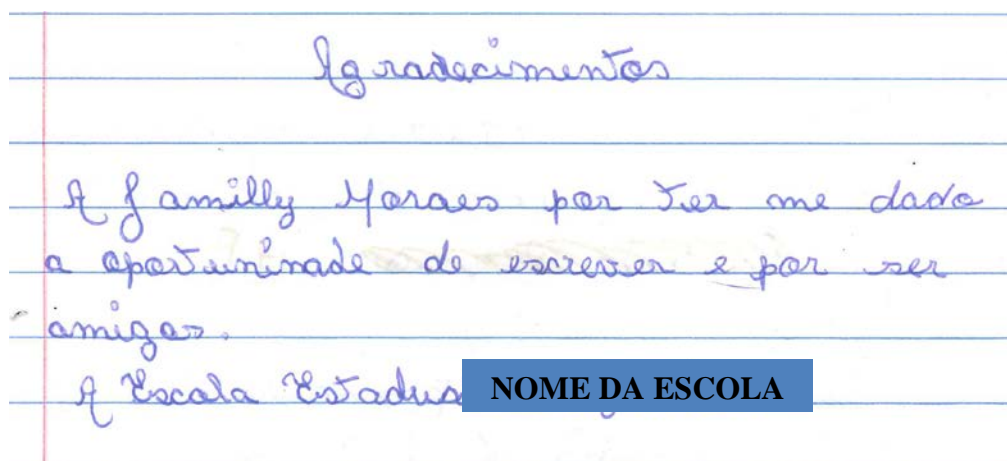 Agradecimentos
A Jamilly Moraes por ter me dado
a oportuninade de escrever e por ser
amigas.
A Escola Estadua NOME DA ESCOLA